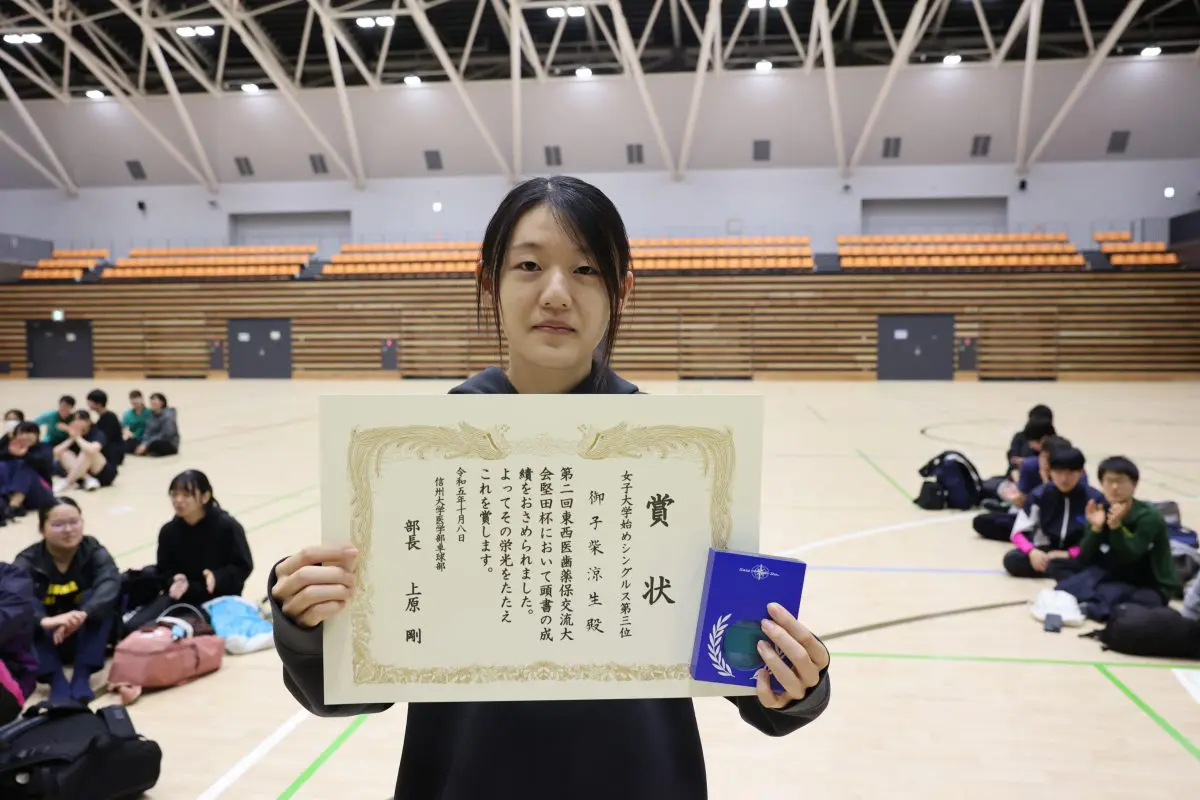 賞状
女子大学始めシングルス第三位
御子柴涼生殿
第二回東西医歯薬保交流大
会堅田杯において頭書の成
績をおさめられました。
よってその栄光をたたえ
これを賞します。
令和五年十月八日
信州大学医学部卓球部
部長 上原 剛